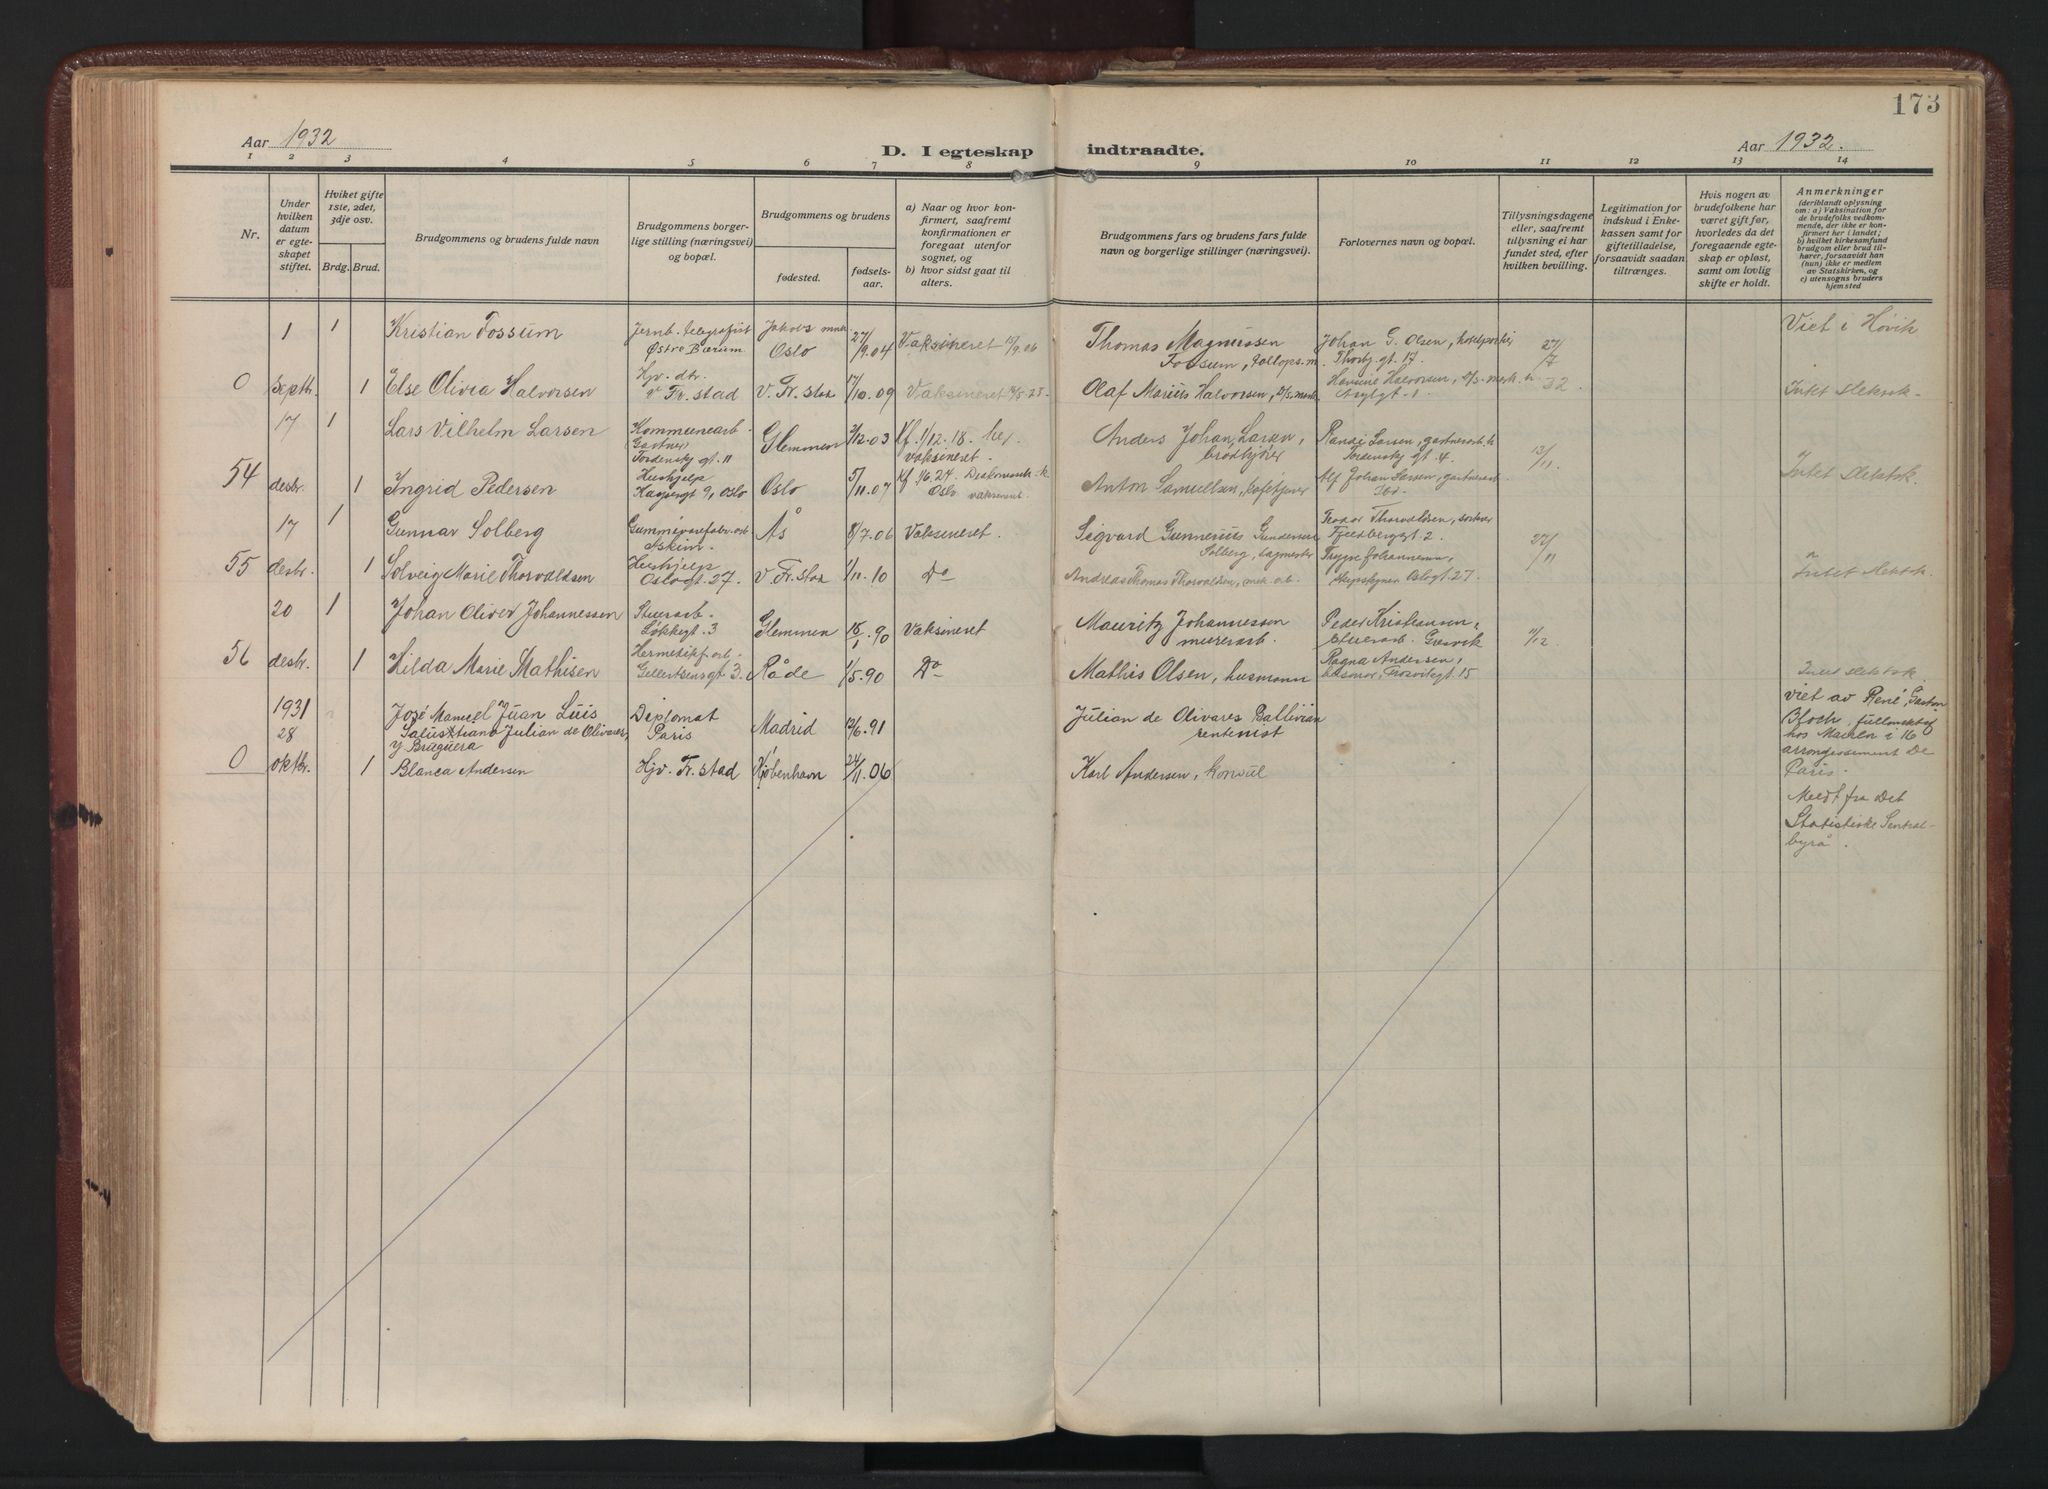 173
Aar 1932
D. I egteskap indtraadte.
Aar 1932.
1 2 3 4 5 6 7 8 9 10 11 12 13 14
Nr.
Under hvilken datum er egteskapet stiftet.
Hviket gifte 1ste, 2det, 3dje osv.
Brdg. Brud.
Brudgommens og brudens fulde navn
Brudgommens borgerlige stilling (næringsvei) og bopæl.
Brudgommens og brudens
fødested.
fødselsaar.
a) Naar og hvor konfirmert, saafremt konfirmationen er foregaat utenfor sognet, og
b) hvor sidst gaat til alters.
Brudgommens fars og brudens fars fulde navn og borgerlige stillinger (næringsvei).
Forlovernes navn og bopæl.
Tillysningsdagene eller, saafremt tillysning ei har fundet sted, efter hvilken bevilling.
Legitimation for indskud i Enkekassen samt for giftetilladelse, forsaavidt saadan tiltrænges.
Hvis nogen av brudefolkene har været gift før, hvorledes da det foregaaende egteskap er opløst, samt om lovlig skifte er holdt.
Anmerkninger
(deriblandt oplysning om: a) Vaksination for de brudefolks vedkommende, der ikke er konfirmert her i landet; b) hvilket kirkesamfund brudgom eller brud tilhører, forsaavidt han (hun) ikke er medlem av Statskirken, og c) utensogns bruders hjemsted
1 1 Kristian Fossum Jernb. telegrafist Østre Bærum Jakobs Oslo 27/9.04 Vaksineret Thomas Magnussen Fossum, Johan G. Olsen, Thorbj.gt. 17. 27/7 Viet i Høvik
0 Septbr. 1 Else Olivia Halvorsen Hjv. dtr. v Fr. stad V. Fr. stad 17/10.09 Vaksineret Olaf Marius Halvorsen, Halvorsen, 32 Intet slektsk.
17 1 Lars Vilhelm Larsen Kommunearb. (Gartner) Tordenskj. gt. 11 Glemmen 2/12.03 Kf. 1/12.18. vaksineret Anders Johan Larsen, brødkjører Randi Larsen, gartnerarb. h Tordenskj. gt. 4. 13/11.
54 desbr. 1 Ingrid Pedersen Hushjelp 9, Oslo Oslo 5/11.07 Kf. 1/6.24. Oslo vaksineret Anton Samuelsen, Alf Johan Larsen, gartnerarb. Ibd. Intet slektsk.
17 1 Gunnar Solberg Gummivarefabr. arb. Askim. Ås 8/7.06 Vaksineret. Sigvard Gunnerius Gundersen Solberg, sagmester Thorvaldsen, 2. 22/11
55 desbr. 1 Solveig Marie Thorvaldsen Hushjelp Oslogt. 27. V. Fr. stad 1/11.10 Do Andreas Thomas Thorvaldsen, mek. arb. Trygve Johannessen, Oslogt. 27. Intet slektsk.
20 1 Johan Oliver Johannessen Stuerarb. Løkkegt. 3 Glemmen 90 Vaksineret Mauritz Johannessen murerarb. Peder Kristiansen, stuerarb. Gressvik 1/12
56 desbr. 1 Hilda Marie Mathisen Hermetikkf. arb. Gellertsensgt. 3. Råde 1/5.90 Do Mathis Olsen, husmann Ragna Andersen, Trosvikgt. 15 Intet slektsk.
1931 28 José Manuel Juan Luis Salustiano Julian de Olivares y Bruguera Diplomat Paris Madrid 6.91 Julian de Olivares Ballivian rentenist viet av René Gaston Bloch, hos Mairen i 16 arrongdissement De Paris.
0 oktbr. 1 Blanca Andersen Hjv. Fr. stad Kjøbenhavn 24/11.06 Karl Andersen, konsul
Meldt fra Det Statistiske Sentralbyrå.